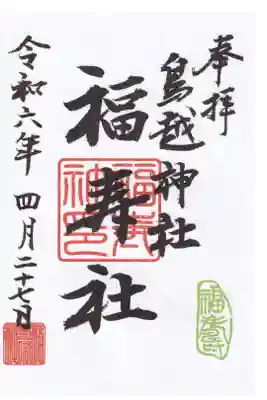 奉拝
鳥越神社
福寿社
令和六年 四月二十七日
福寿